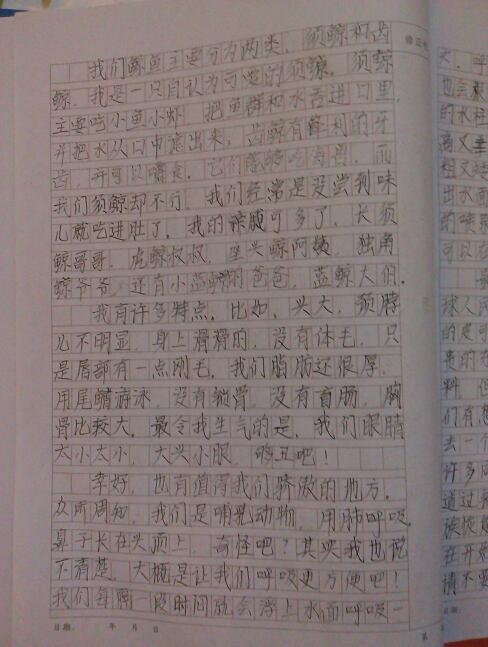 我们鲸鱼主要分为两类，须鲸和齿
鲸，我是一只自认为可爱的须鲸，须鲸
主要吃小鱼小虾，把鱼群和水吞进口里，
并把水从口中滤出来，齿鲸有锋利的牙
齿，并可以嚼食，它们能够吃海兽，而
我们须鲸却不行，我们经常是没尝到味
儿就吃进肚了，我的亲戚可多了，长须
鲸哥哥，虎鲸叔叔，座头鲸阿姨，独角
鲸爷爷，还有小蓝鲸的爸爸，蓝鲸大伯。
我有许多特点，比如，头大，颈脖
儿不明显，身上滑滑的，没有体毛，只
是唇部有一点刚毛，我们脂肪还很厚，
用尾鳍游泳，没有锁骨，没有盲肠，胸
骨比较大，最令我生气的是，我们眼睛
太小太小，大头小眼，够丑吧！
幸好，也有值得我们骄傲的地方，
众所周知，我们是哺乳动物，用肺呼吸，
鼻子长在头顶上，奇怪吧？其实我也说
不清楚，大概是让我们呼吸更方便吧！
我们每隔一段时间就会浮上水面呼吸一
日期： 年 月 日
第
修正
大，呼
也会
的水柱
高又
粗又
出水面
的喷
可以在
球人民
的是可
贵的
料，但
们有
去一个
许多
通过
族
在开
请不要
日期：